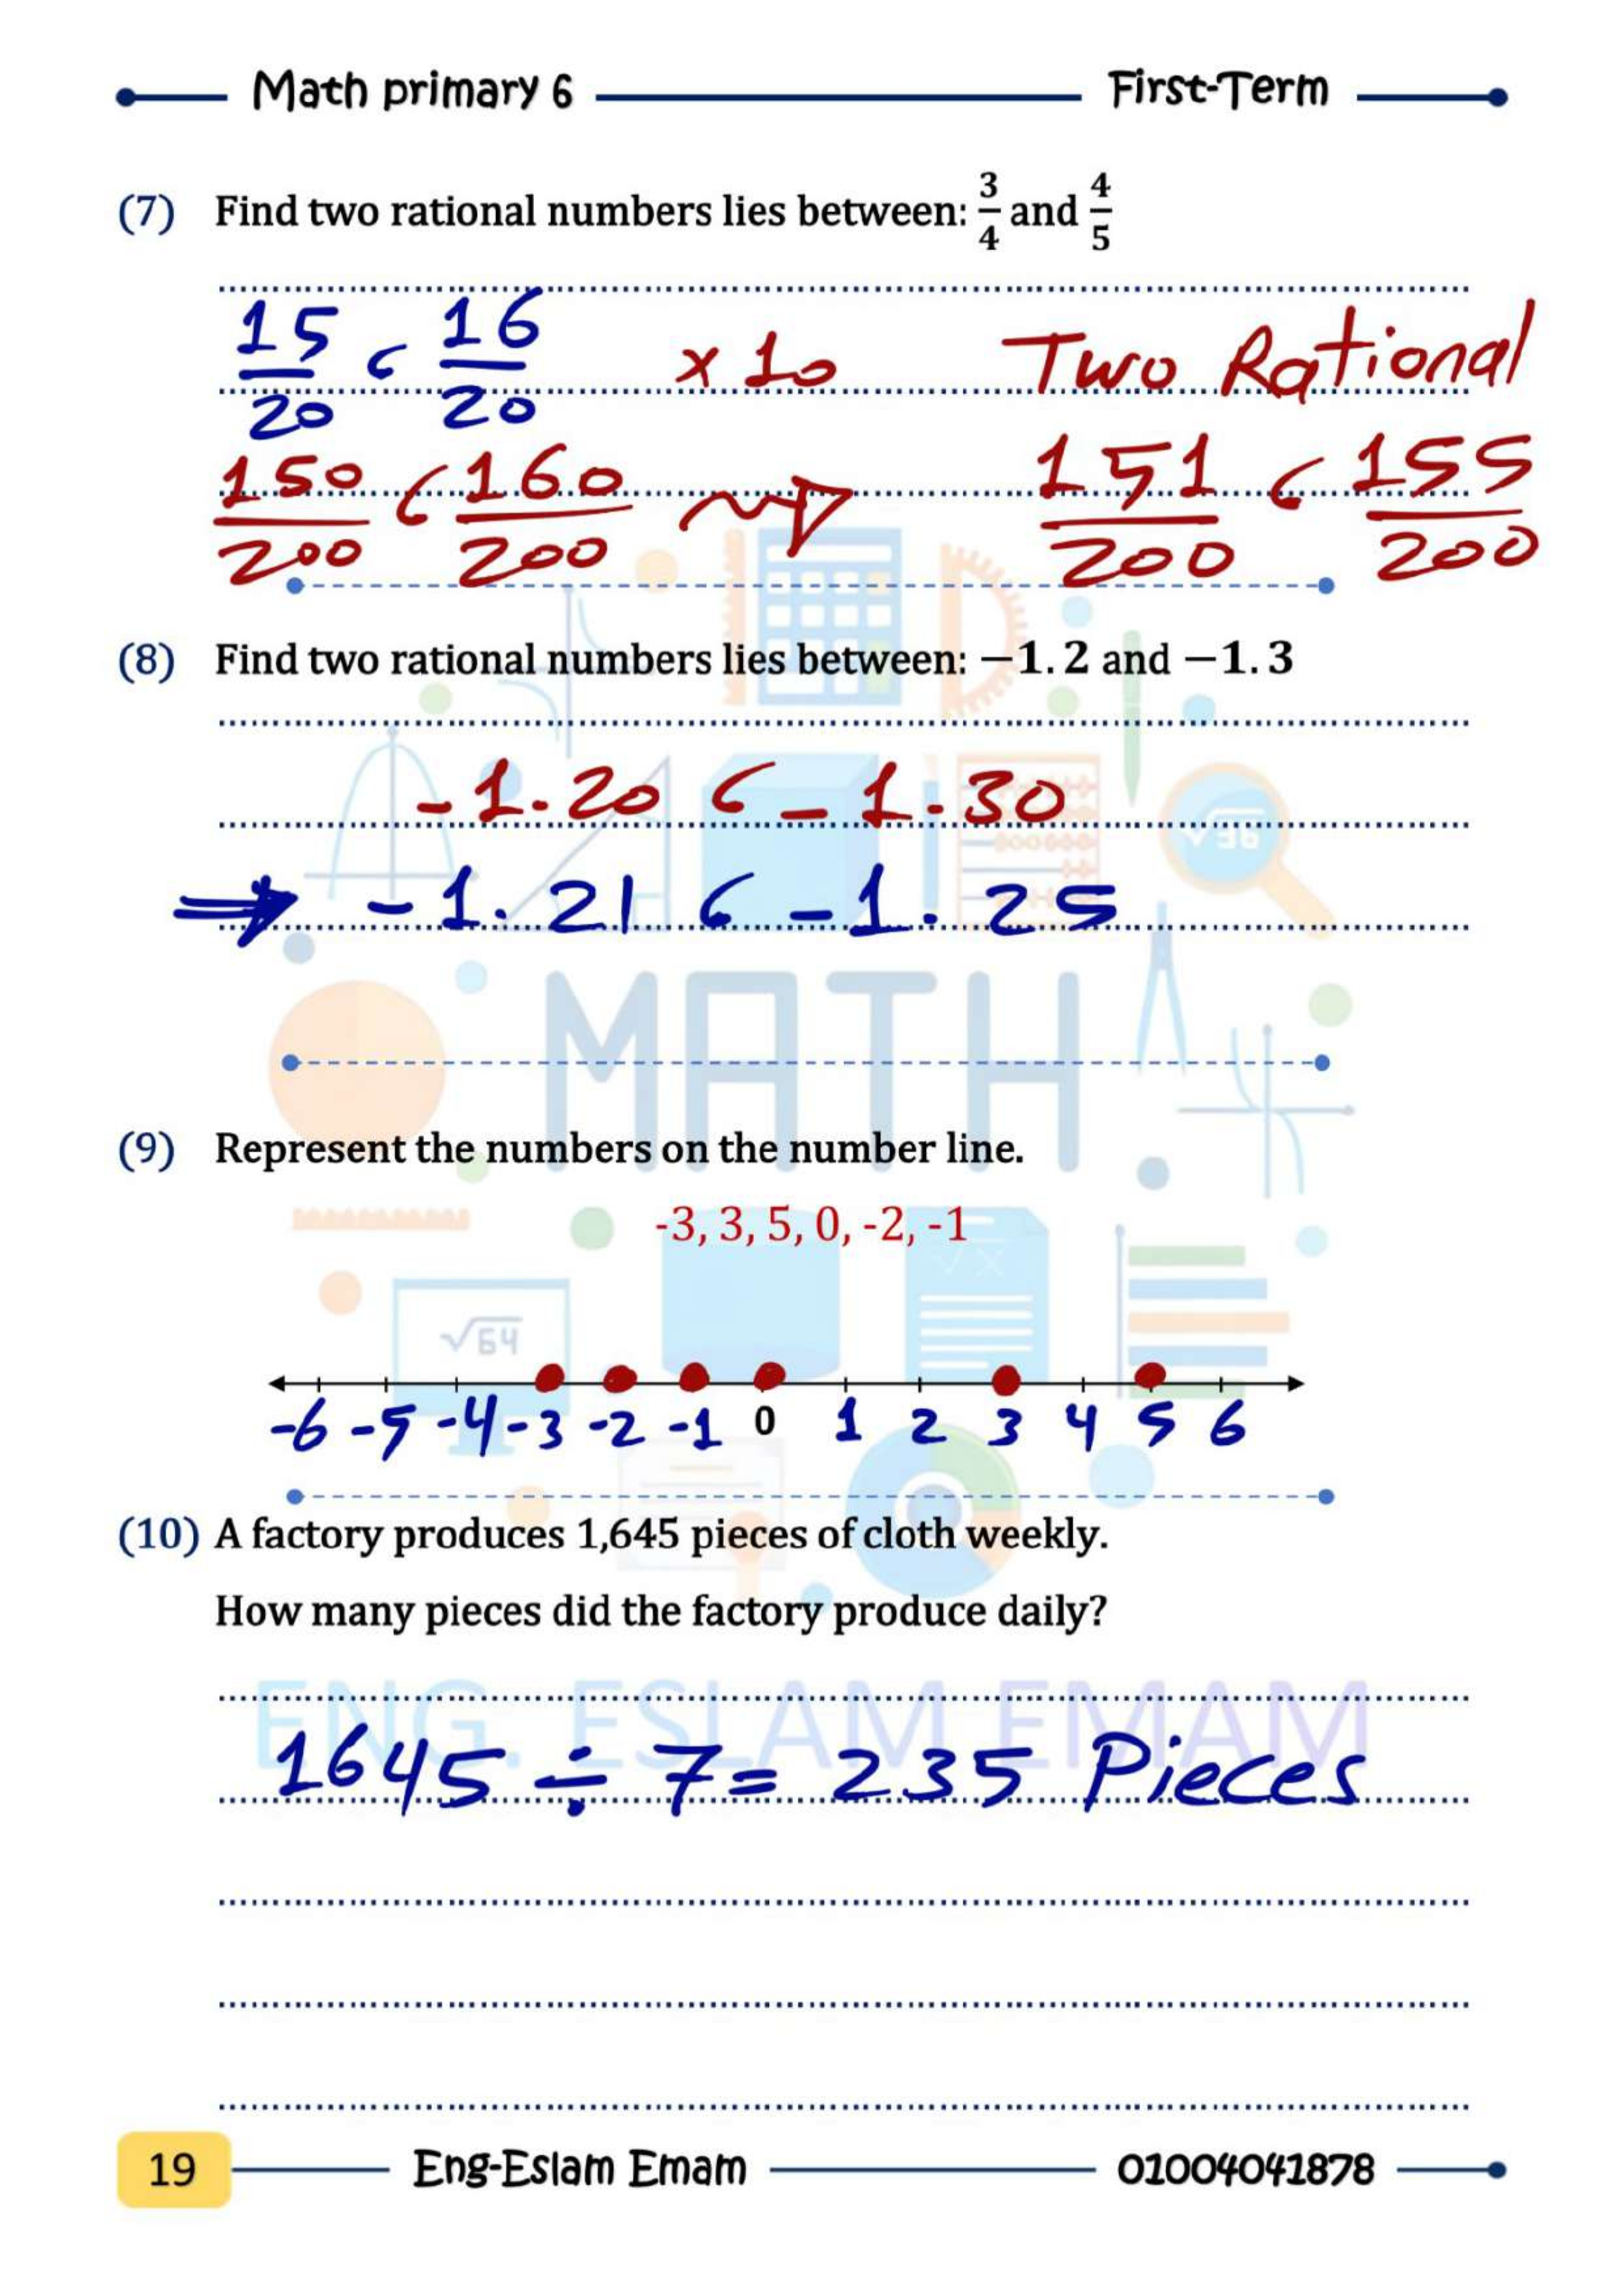 Math primary 6 First-Term
(7) Find two rational numbers lies between: 3/4 and 4/5
15/20 , 16/20 × 10 Two Rational
150/200 , 160/200 151/200 , 155/200
(8) Find two rational numbers lies between: −1.2 and −1.3
√36
-1.20 , -1.30
⇒ -1.21 , -1.25
MATH
(9) Represent the numbers on the number line.
-3, 3, 5, 0, -2, -1
√x
√64
-6 -5 -4 -3 -2 -1 0 1 2 3 4 5 6
(10) A factory produces 1,645 pieces of cloth weekly.
How many pieces did the factory produce daily?
ENG. ESLAM EMAM
1645 ÷ 7 = 235 Pieces
19 Eng-Eslam Emam 01004041878